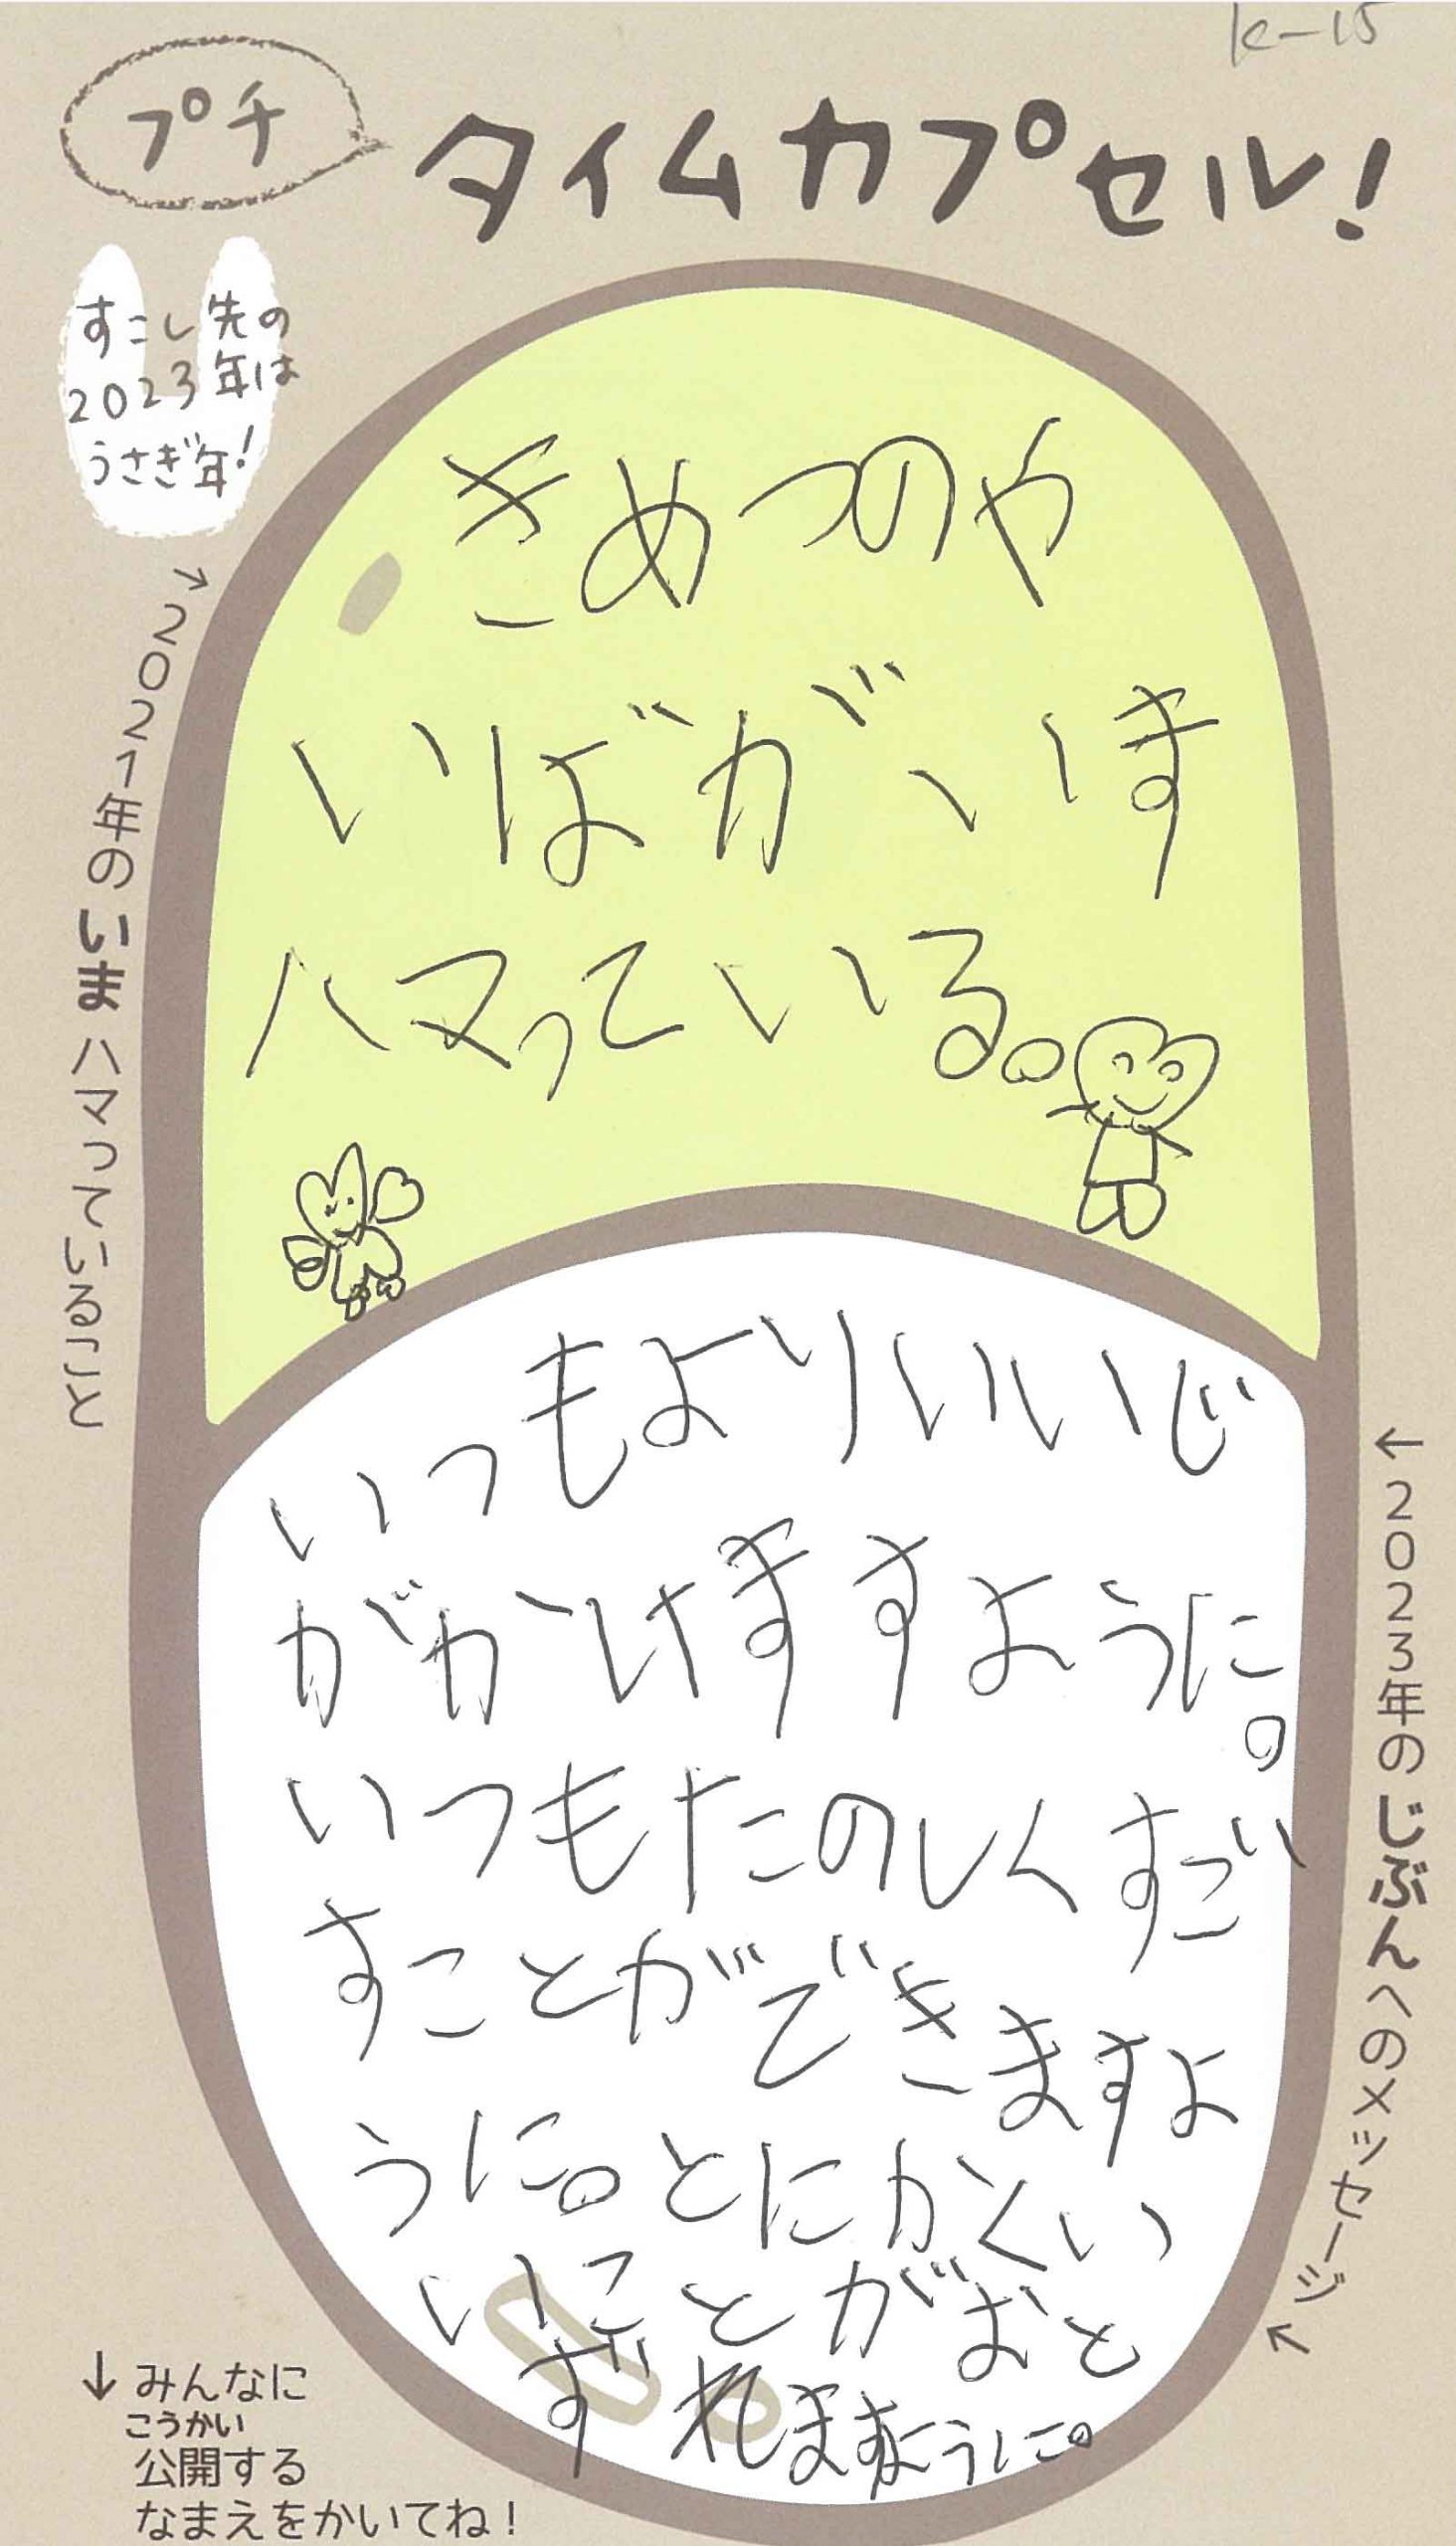 k-15
プチ
タイムカプセル!
すこし先の
2023年は
うさぎ年!
→2021年のいまハマっていること
きめつのや
いばがいま
ハマっている。
←2023年のじぶんへのメッセージ↖
いつもよりいいじ
がかけますように。
いつもたのしくすご
すことができますよ
うに。とにかくい
いことがおと
ずれますように。
↓みんなに
こうかい
公開する
なまえをかいてね!